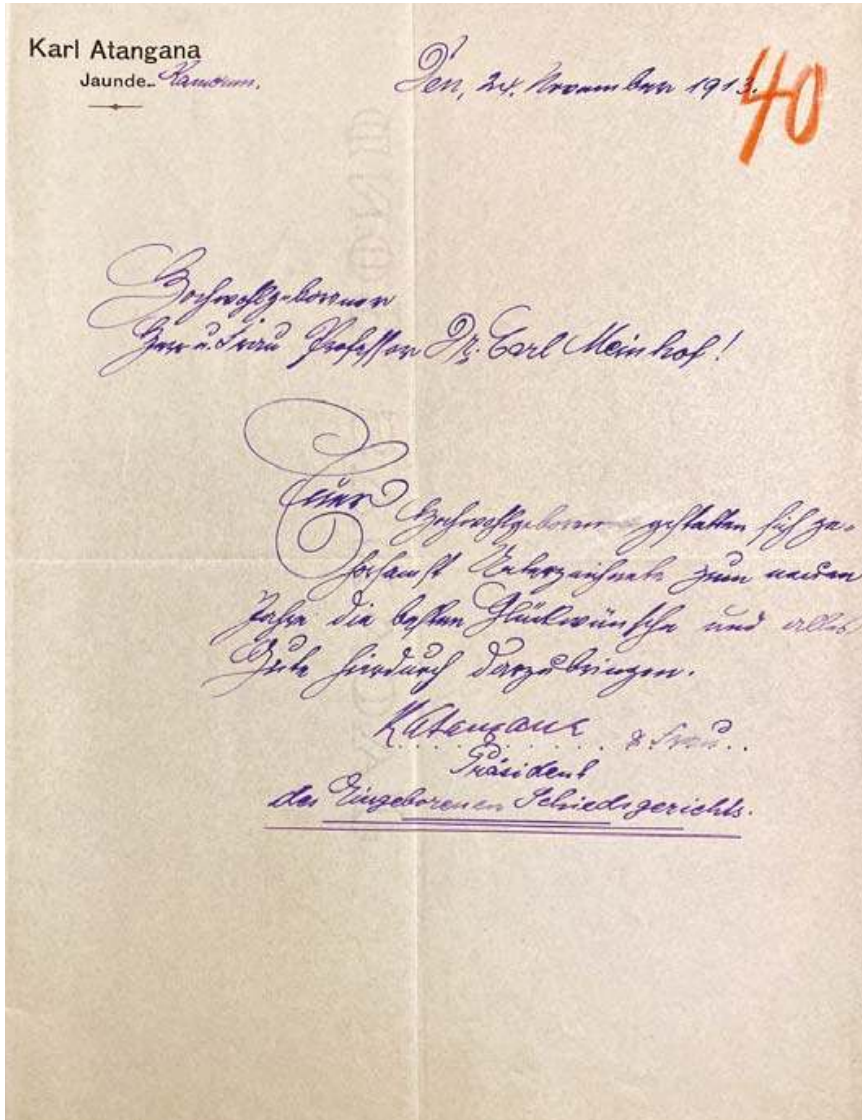 Karl Atangana
Jaunde. Kamerun.
Den, 24. November 1913.
40
Hochwohlgeborener
Herr u. Frau Professor Dr. Carl Meinhof!
Euer Hochwohlgeboren gestatten sich ge-
horsamst Unterzeichnete zum neuen
Jahre die besten Glückwünsche und alles
Gute hierdurch darzubringen.
KAtangana & Frau
Präsident
des Eingeborenen Schiedsgerichts.